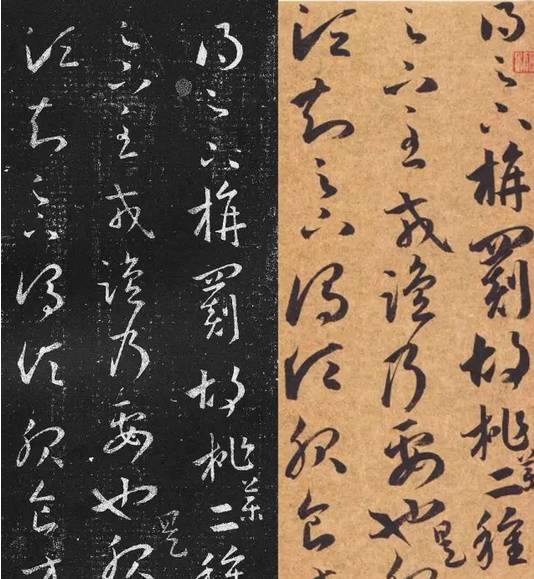 得足下旃罽胡桃藥二種
足下至戎鹽乃要也是服
須知足下謂須服食方
得足下旃罽胡桃藥二種
足下至戎鹽乃要也是服
須知足下謂須服食方